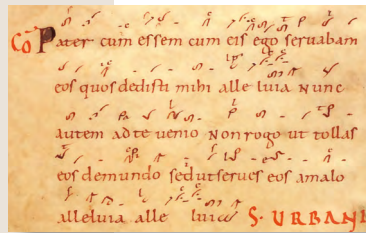 Cō Pater cum essem cum eis ego seruabam
eos quos dedisti mihi alle luia Nunc
autem ad te uenio Non rogo ut tollas
eos de mundo sed ut serues eos a malo
alleluia alle luia S. URBANI